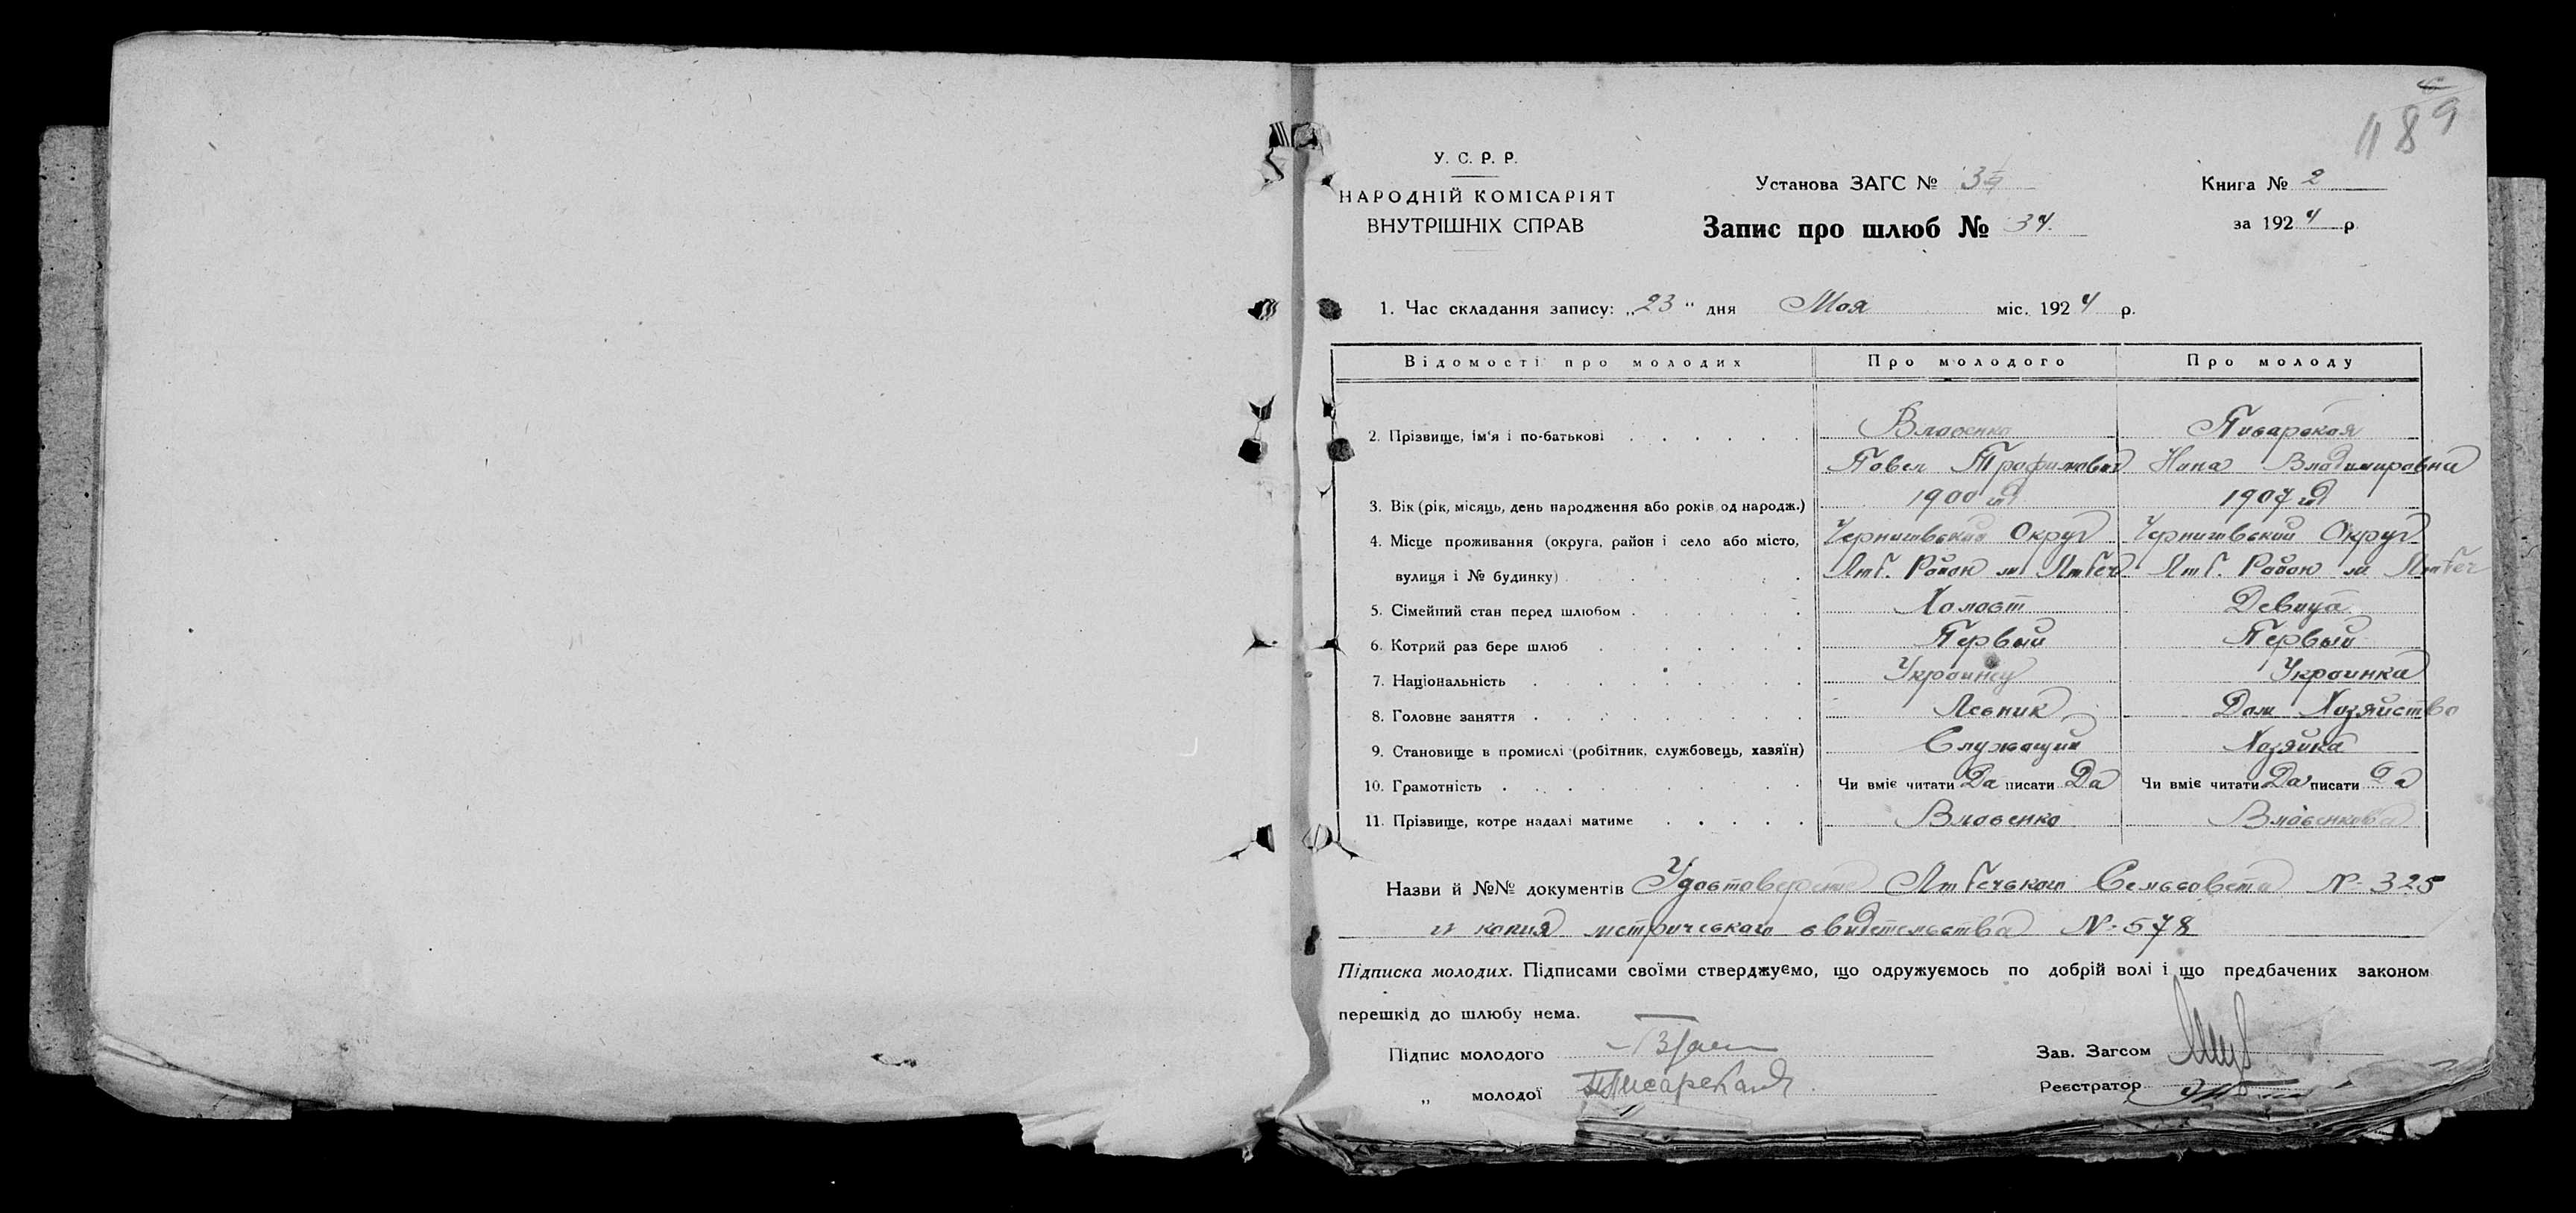 189
У. С. Р. Р.
НАРОДНІЙ КОМІСАРІЯТ
ВНУТРІШНІХ СПРАВ
Установа ЗАГС №
Запис про шлюб № 34.
Книга № 2
за 1924 р.
1. Час складання запису: „23" дня Мая міс. 1924 р.
Відомості про молодих Про молодого Про молоду
2. Прізвище, ім'я і по-батькові Власенко Писарская
Павел Трофимович Нина Владимировна
3. Вік (рік, місяць, день народження або років од народж.) 1900 год 1907 год
4. Місце проживання (округа, район і село або місто, Черниговский Округ Черниговский Округ
вулиця і № будинку) Люб. Район м Любеч Люб. Район м Любеч
5. Сімейний стан перед шлюбом Холост Девица
6. Котрий раз бере шлюб Первый Первый
7. Національність Украинец Украинка
8. Головне заняття Лесник Дом Хозяйство
9. Становище в промислі (робітник, службовець, хазяїн) Служащий Хозяйка
10. Грамотність Чи вміє читати Да писати Да Чи вміє читати Да писати Да
11. Прізвище, котре надалі матиме Власенко Власенкова
Назви й №№ документів Удостоверение Любечского Сельсовета № 325
и копия метрического свидетельства № 578
Підписка молодих. Підписами своїми стверджуємо, що одружуємось по добрій волі і що предбачених законом
перешкід до шлюбу нема.
Підпис молодого
„ молодої Писарская
Зав. Загсом
Реєстратор